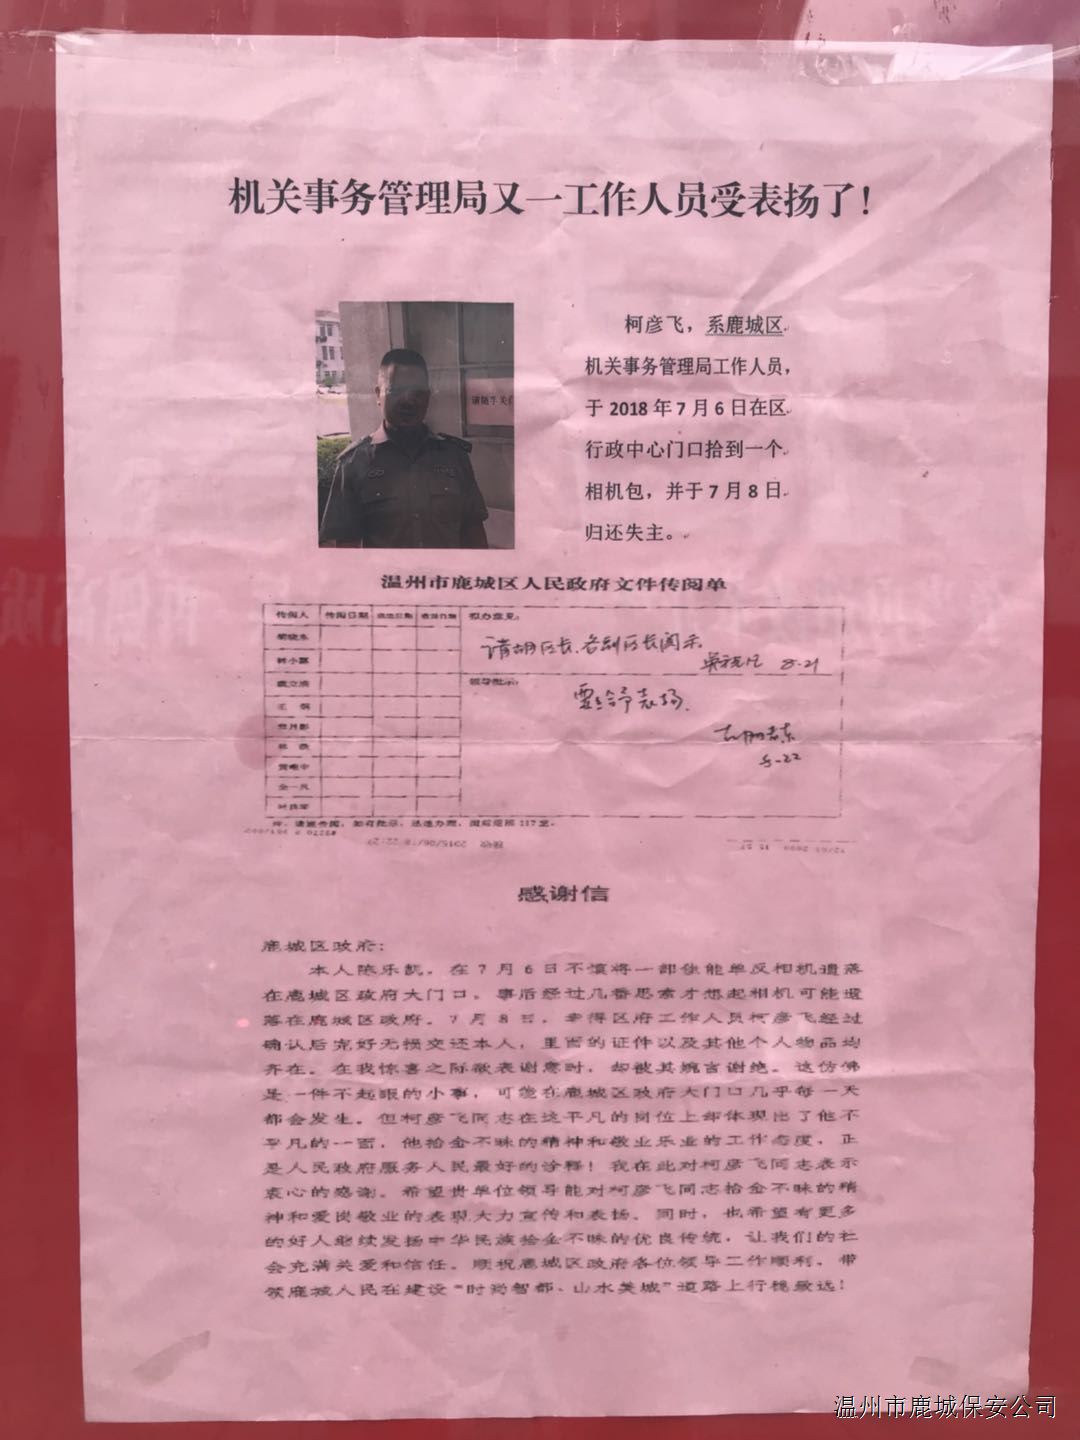 机关事务管理局又一工作人员受表扬了！
请随手关
柯彦飞，系鹿城区
机关事务管理局工作人员，
于 2018 年 7 月 6 日在区
行政中心门口拾到一个
相机包，并于 7 月 8 日
归还失主。
温州市鹿城区人民政府文件传阅单
传阅人 传阅日期 拟办意见：
请胡区长、各副区长阅示
8.21
领导批示：
要给予表扬
8.22
感谢信
鹿城区政府：
本人陈乐凯，在 7 月 6 日不慎将一部佳能单反相机遗落
在鹿城区政府大门口。事后经过几番思索才想起相机可能遗
落在鹿城区政府。7 月 8 日，幸得区府工作人员柯彦飞经过
确认后完好无损交还本人，里面的证件以及其他个人物品均
齐在。在我惊喜之际欲表谢意时，却被其婉言谢绝。这仿佛
是一件不起眼的小事，可能在鹿城区政府大门口几乎每一天
都会发生。但柯彦飞同志在这平凡的岗位上却体现出了他不
平凡的一面，他拾金不昧的精神和敬业乐业的工作态度，正
是人民政府服务人民最好的诠释！我在此对柯彦飞同志表示
衷心的感谢。希望贵单位领导能对柯彦飞同志拾金不昧的精
神和爱岗敬业的表现大力宣传和表扬。同时，也希望有更多
的好人继续发扬中华民族拾金不昧的优良传统，让我们的社
会充满关爱和信任。顺祝鹿城区政府各位领导工作顺利，带
领鹿城人民在建设“时尚智都、山水美城”道路上行稳致远！
温州市鹿城保安公司